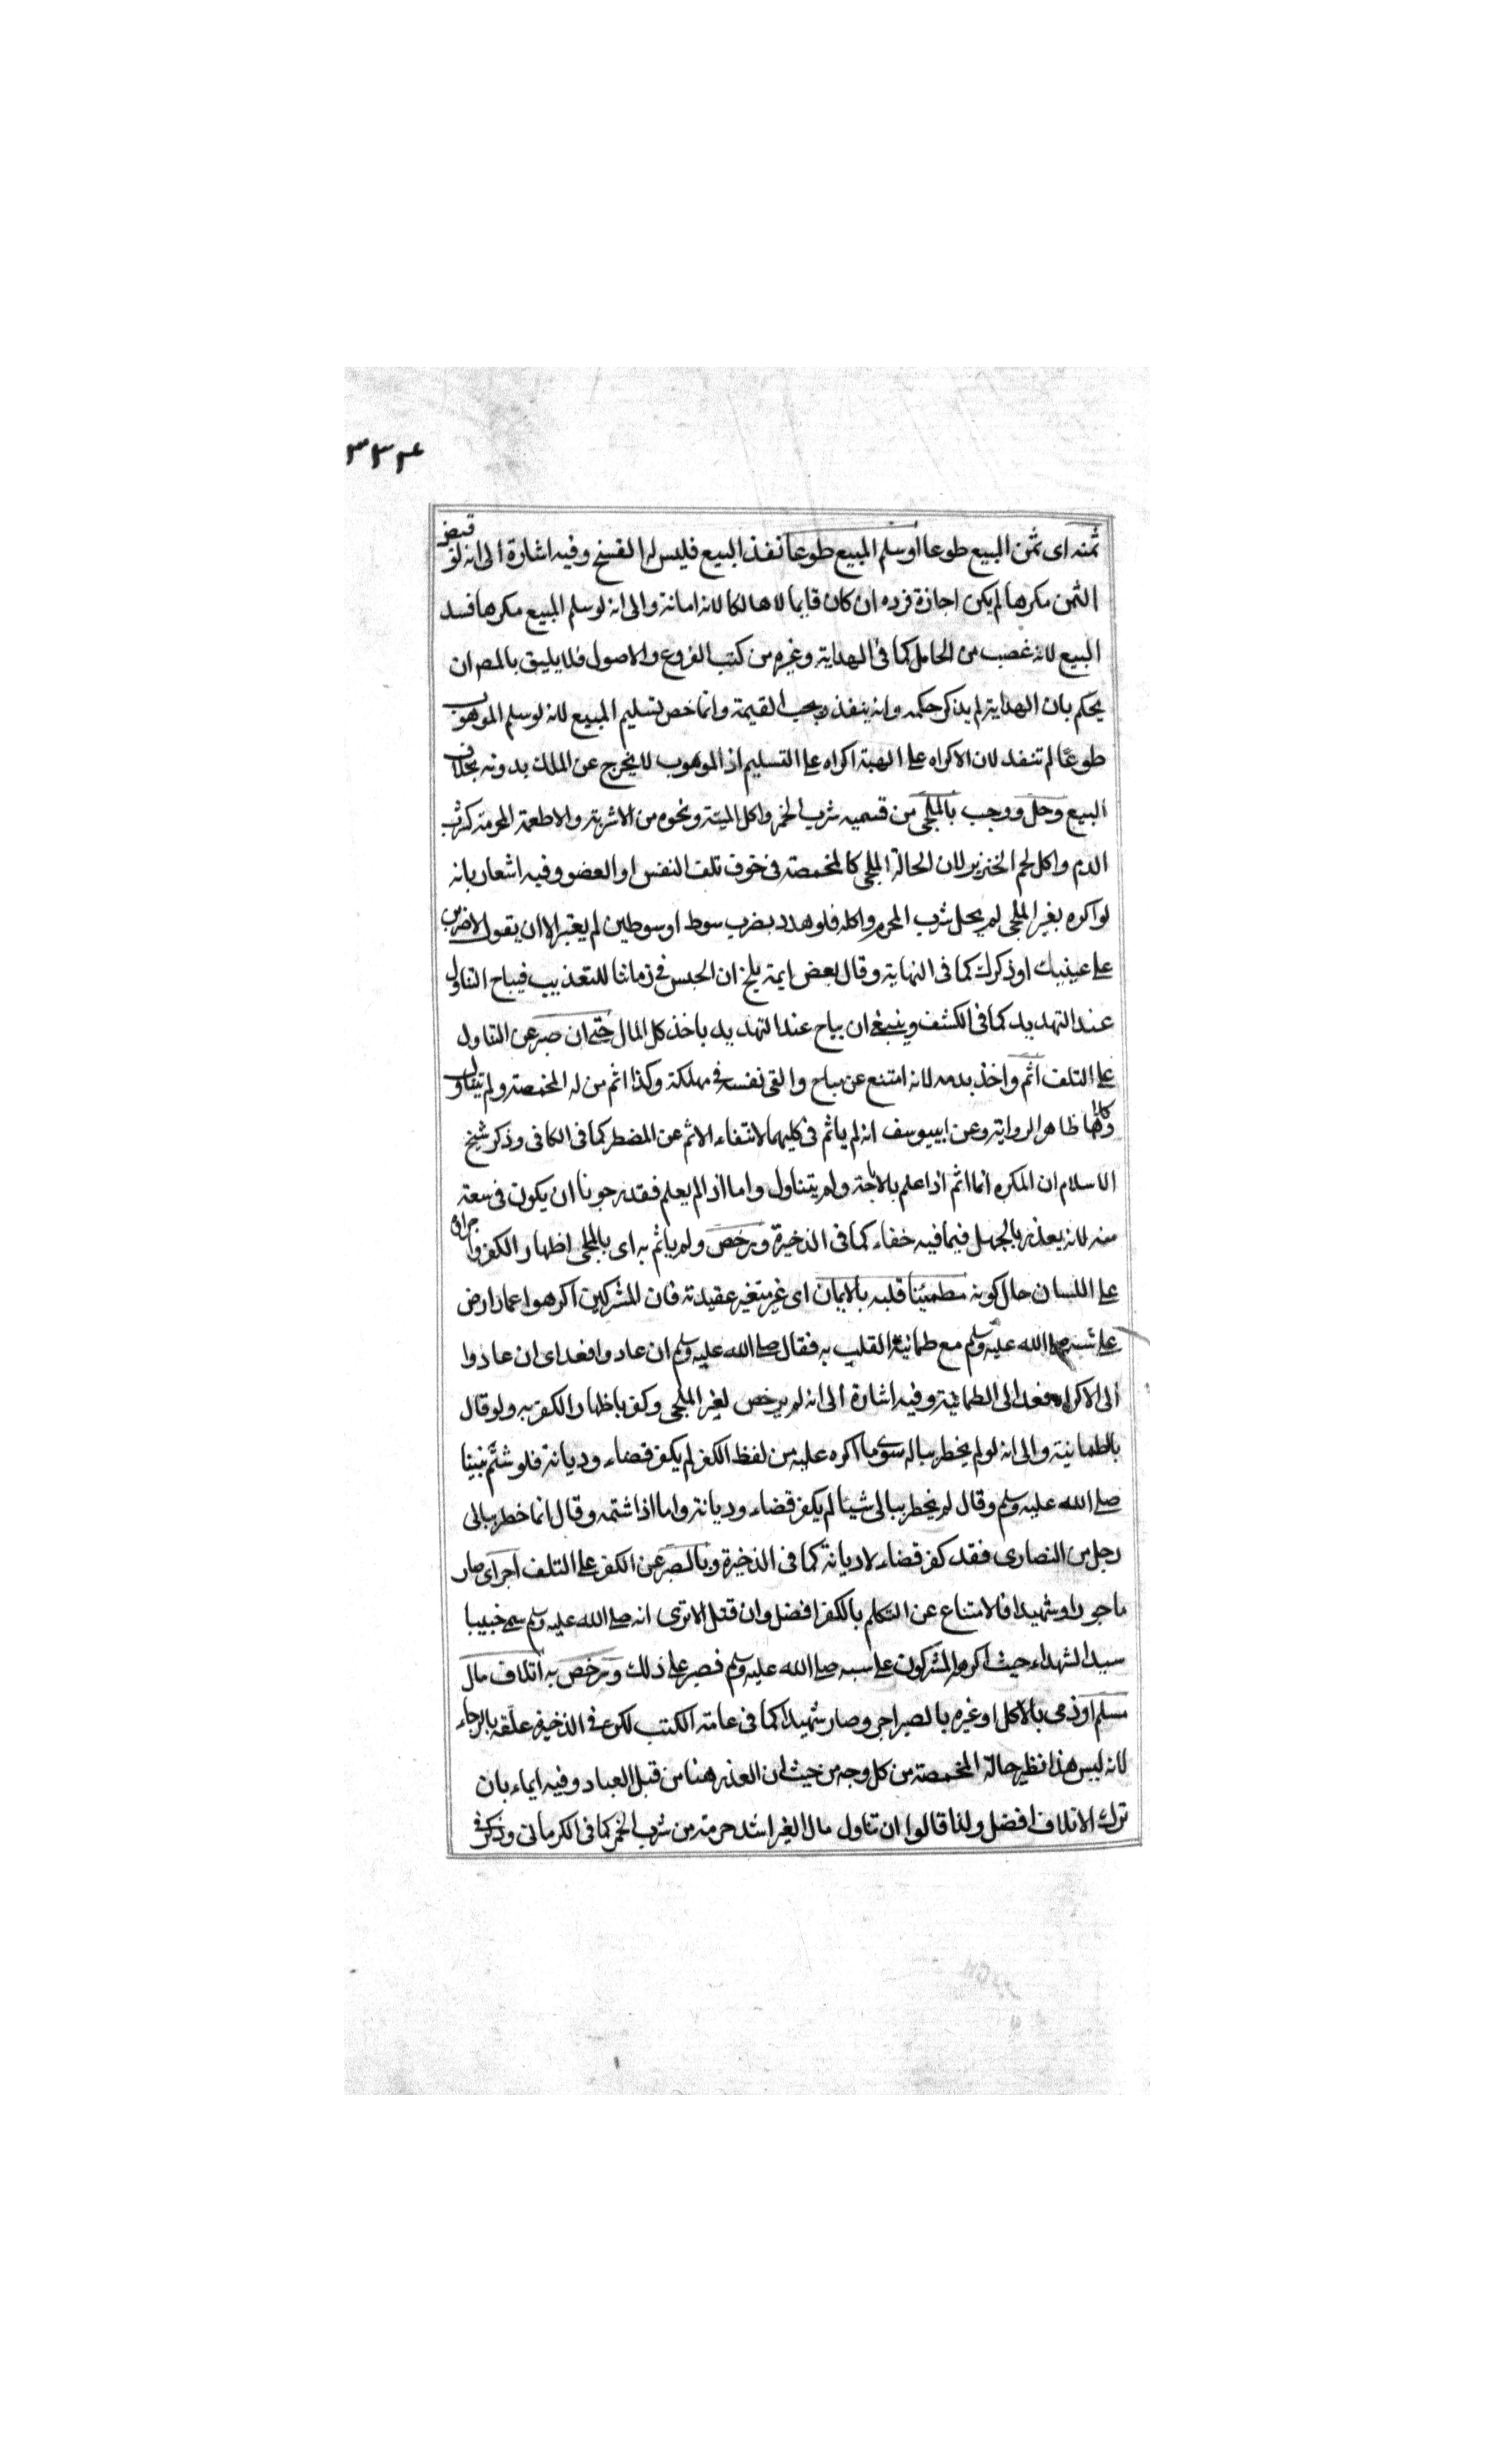 ٣٣٤
ثمنه اى ثمن المبيع طوعا او سلم المبيع طوعا نفذ البيع فليس له الفسخ وفيه اشارة الى انه لو قبض
الثمن مكرها لم يكن اجازة فرده ان كان قايما لا هالكا لانه امانة والى انه لو سلم المبيع مكرها فسد
البيع لانه غصب من الحامل كما فى الهداية وغيره من كتب الفروع والاصول فلا يليق بالمصر ان
يحكم بان الهداية لم يذكر حكمه وانه ينفذ ويجب القيمة وانما خص تسليم المبيع لانه لو سلم الموهوب
طوعا لم تنفذ لان الاكراه على الهبة اكراه على التسليم اذ الموهوب لا يخرج عن الملك بدونه بخلاف
البيع وحل ووجب بالملجى من قسميه شرب الخمر واكل الميتة ونحوه من الاشربة والاطعمة المحرمة كشرب
الدم واكل لحم الخنزير لان الحالة الملجى كالمخمصة فى خوف تلف النفس او العضو وفيه اشعار بانه
لو اكره بغير الملجى لم يحل شرب المحرم واكله فلو هدد بضرب سوط او سوطين لم يعتبر الا ان يقول لاضربن
على عينيك او ذكرك كما فى النهاية وقال بعض ايمة بلخ ان الحبس فى زماننا للتعذيب فيباح التناول
عند التهديد كما فى الكشف وينبغى ان يباح عند التهديد باخذ كل المال حتى ان صبر عن التناول
على التلف اثم واخذ بدمه لانه امتنع عن مباح والقى نفسه فى مهلكة وكذا اثم من له المخمصة ولم يتناول
وكلاهما ظاهر الرواية وعن ابييوسف انه لم ياثم فى كليهما لانتفاء الاثم عن المضطر كما فى الكافى وذكر شيخ
الاسلام ان المكره انما اثم اذا علم بالاباحة ولم يتناول واما اذا لم يعلم فقد رجونا ان يكون فى سعة
منه لانه يعذر بالجهل فيما فيه خفاء كما فى الذخيرة ورخص ولم ياثم به اى بالملجى اظهار الكفر واجراؤه
على اللسان حال كونه مطمئنا قلبه بالايمان اى غير متغير عقيدته فان المشركين اكرهوا عمارا رض
على شتمه صلى الله عليه وسلم مع طمانية القلب به فقال صلى الله عليه وسلم ان عادوا فعد اى ان عادوا
الى الاكراه فعد الى الطمانية وفيه اشارة الى انه لم يرخص لغير الملجى وكفر باظهار الكفر به ولو قال
بالطمانية والى انه لو لم يخطر بباله سوى ما اكره عليه من لفظ الكفر لم يكفر قضاء وديانة فلو شتم نبينا
صلى الله عليه وسلم وقال لم يخطر ببالى شيئا لم يكفر قضاء وديانة واما اذا شتمه وقال انما خطر ببالى
رجل من النصارى فقد كفر قضاء لا ديانة كما فى الذخيرة وبالصبر عن الكفر على التلف اجر اى صار
ماجورا وشهيدا فالامتناع عن التكلم بالكفر افضل وان قتل الا ترى انه صلى الله عليه وسلم سمى خبيبا
سيد الشهداء حيث اكره المشركون على سبه صلى الله عليه وسلم فصبر على ذلك ورخص به اتلاف مال
مسلم او ذمى بالاكل او غيره بالصبر اجر وصار شهيدا كما فى عامة الكتب لكن فى الذخيرة علقه بالرجاء
لانه ليس هذا نظير حالة المخمصة من كل وجه من حيث ان العذر هنا من قبل العباد وفيه ايماء بان
ترك الاتلاف افضل ولذا قالوا ان تناول مال الغير اشد حرمة من شرب الخمر كما فى الكرمانى وذكر فى